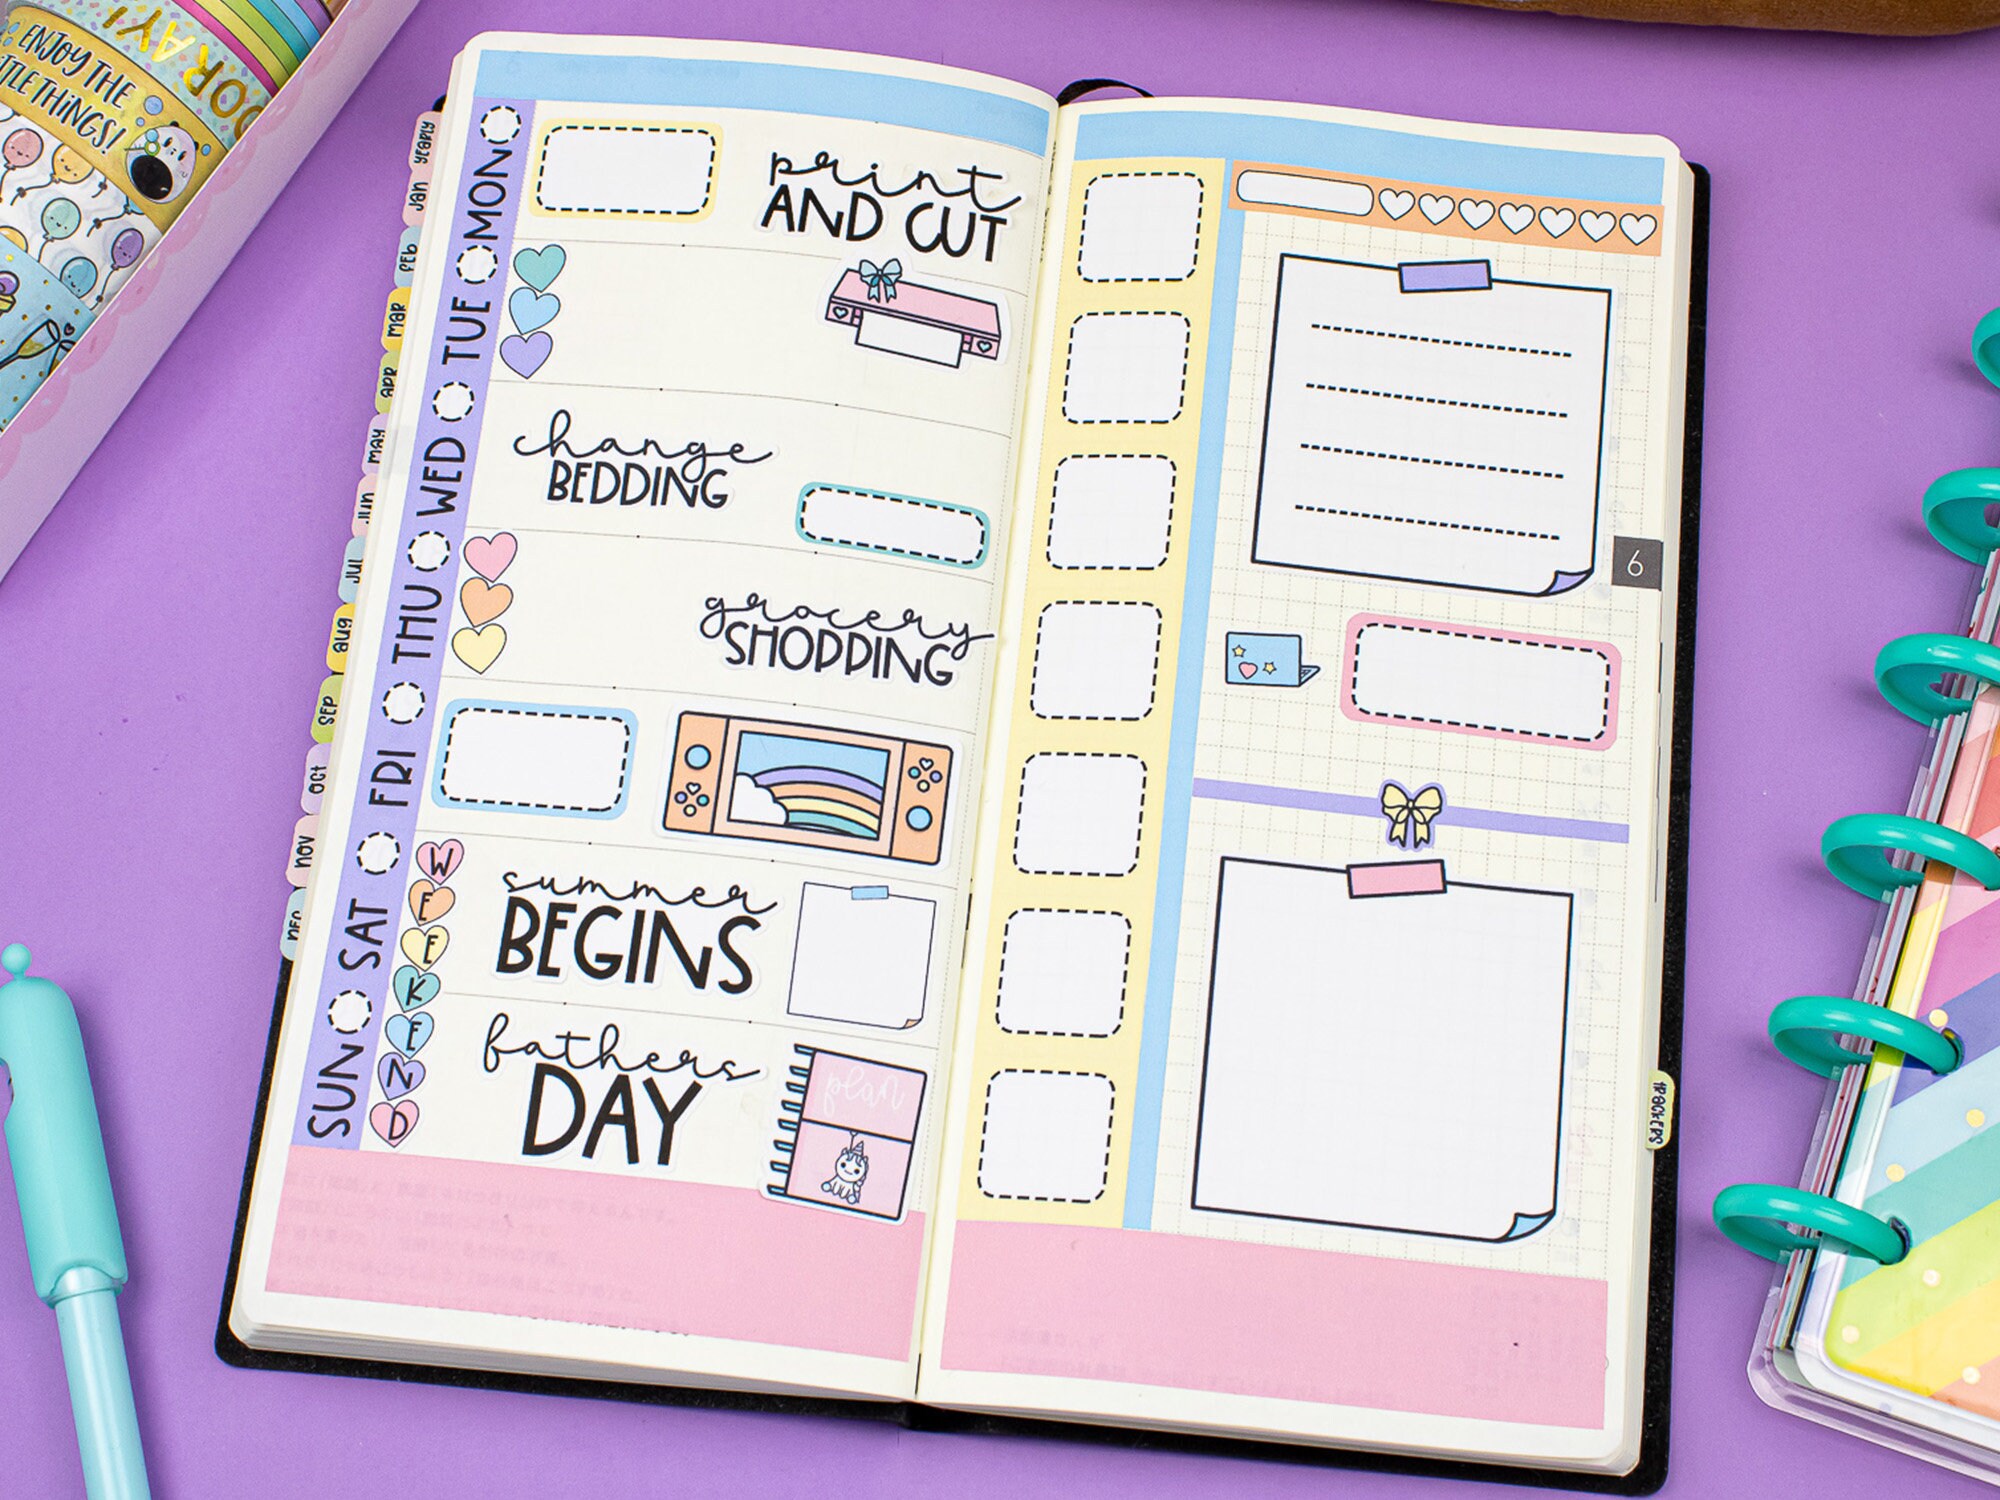 ENJOY THE
TLE THINGS!
YEARLY
JAN
FEB
MAR
APR
MAY
JUL
AUG
SEP
OCT
NOV
DEC
MON
TUE
WED
THU
FRI
SAT
SUN
print
AND CUT
change
BEDDING
grocery
SHOPPING
WEEKEND
summer
BEGINS
fathers
DAY
plan
6
TRACKERS